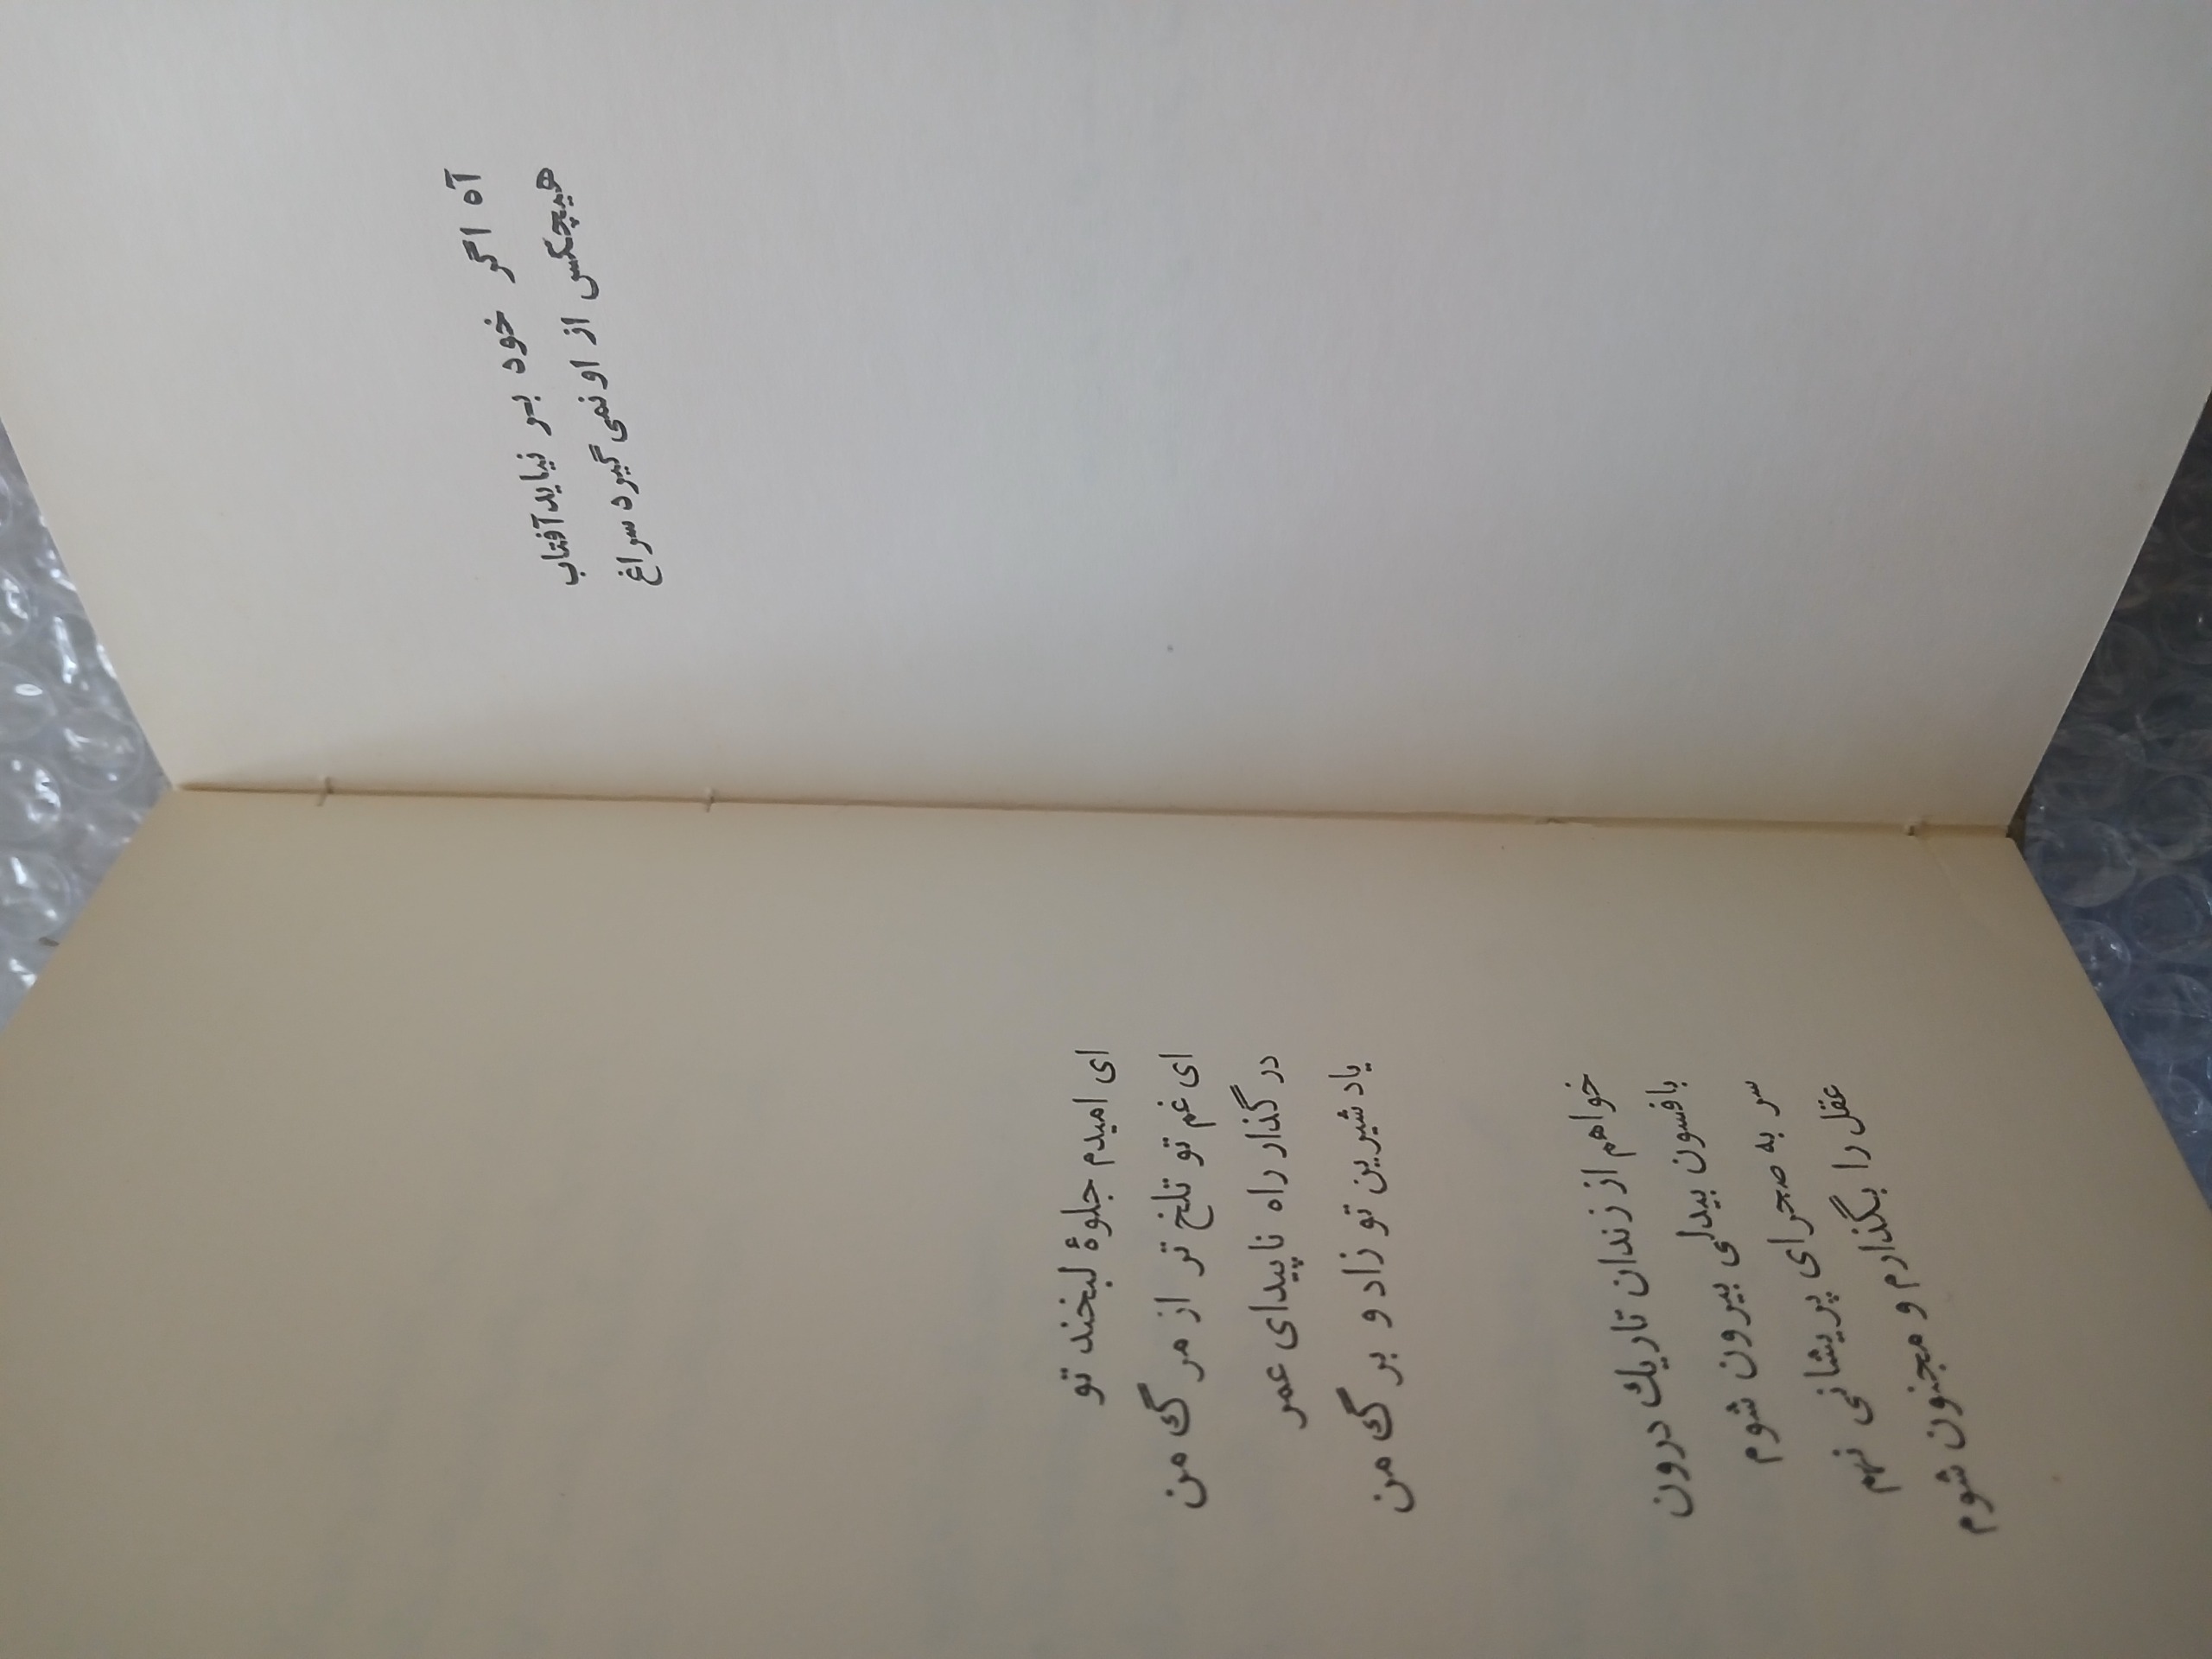 آه اگر خود بر نیاید آفتاب
هیچکس از او نمی گیرد سراغ
ای امیدم جلوۀ لبخند تو
ای غم تو تلخ تر از مرگ من
در گذار راه ناپیدای عمر
یاد شیرین تو زاد و برگ من
خواهم از زندان تاریك درون
بافسون بیدلی بیرون شوم
سر به صحرای پریشانی نهم
عقل را بگذارم و مجنون شوم